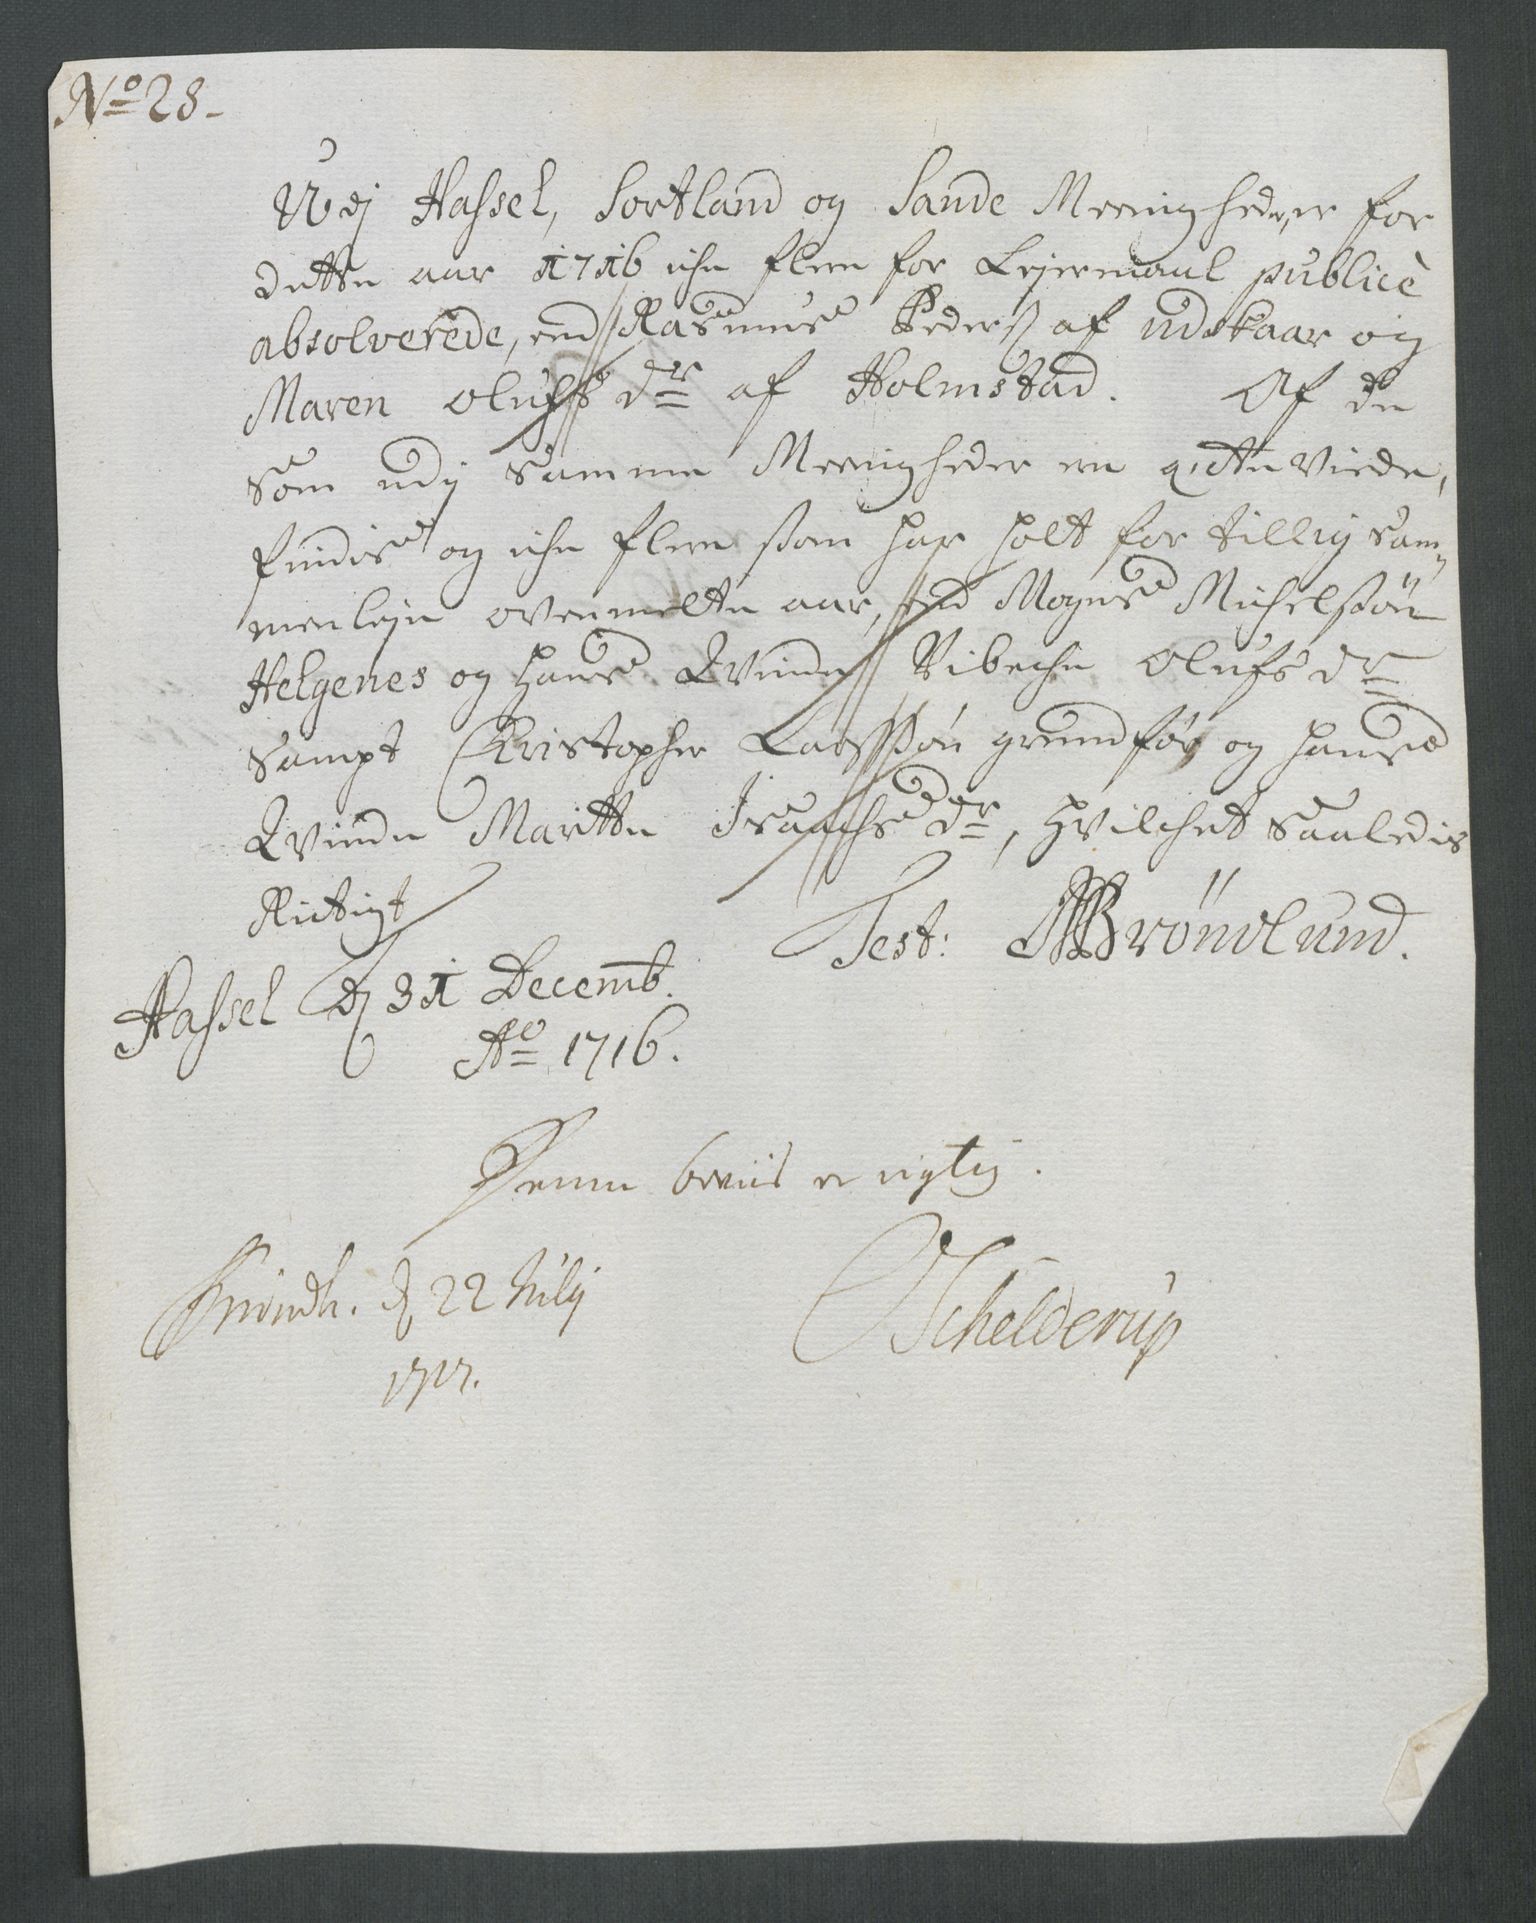 No 28-
Udj Hassel, Sortland og Sande Meenigheder, er for
dette aar 1716 iche fleere for Lejermaal publicè
absolverede, end Rasmus Peders: af udskaar og
Maren Olufs dr af Holmstad. Af de
som udj samme Meenigheder ere gifte viede,
findis og iche fleere som har holt for tillig Sam-
menleje ovenmelte aar, end Mogns Michelssøn
Helgenes og hans Qvinde Vibeche Olufs dr
Sampt Christopher Larssøn grundfør og hans
Qvinde Maritte Isaachs dr, hvilchet saaledis
Rictigt
Test: Brøndlund.
Hassel dj 31 Decemb.
Ao 1716.
Denne beviis er rigtig.
Trundh. d 22 Julij
1717.
Schelderup